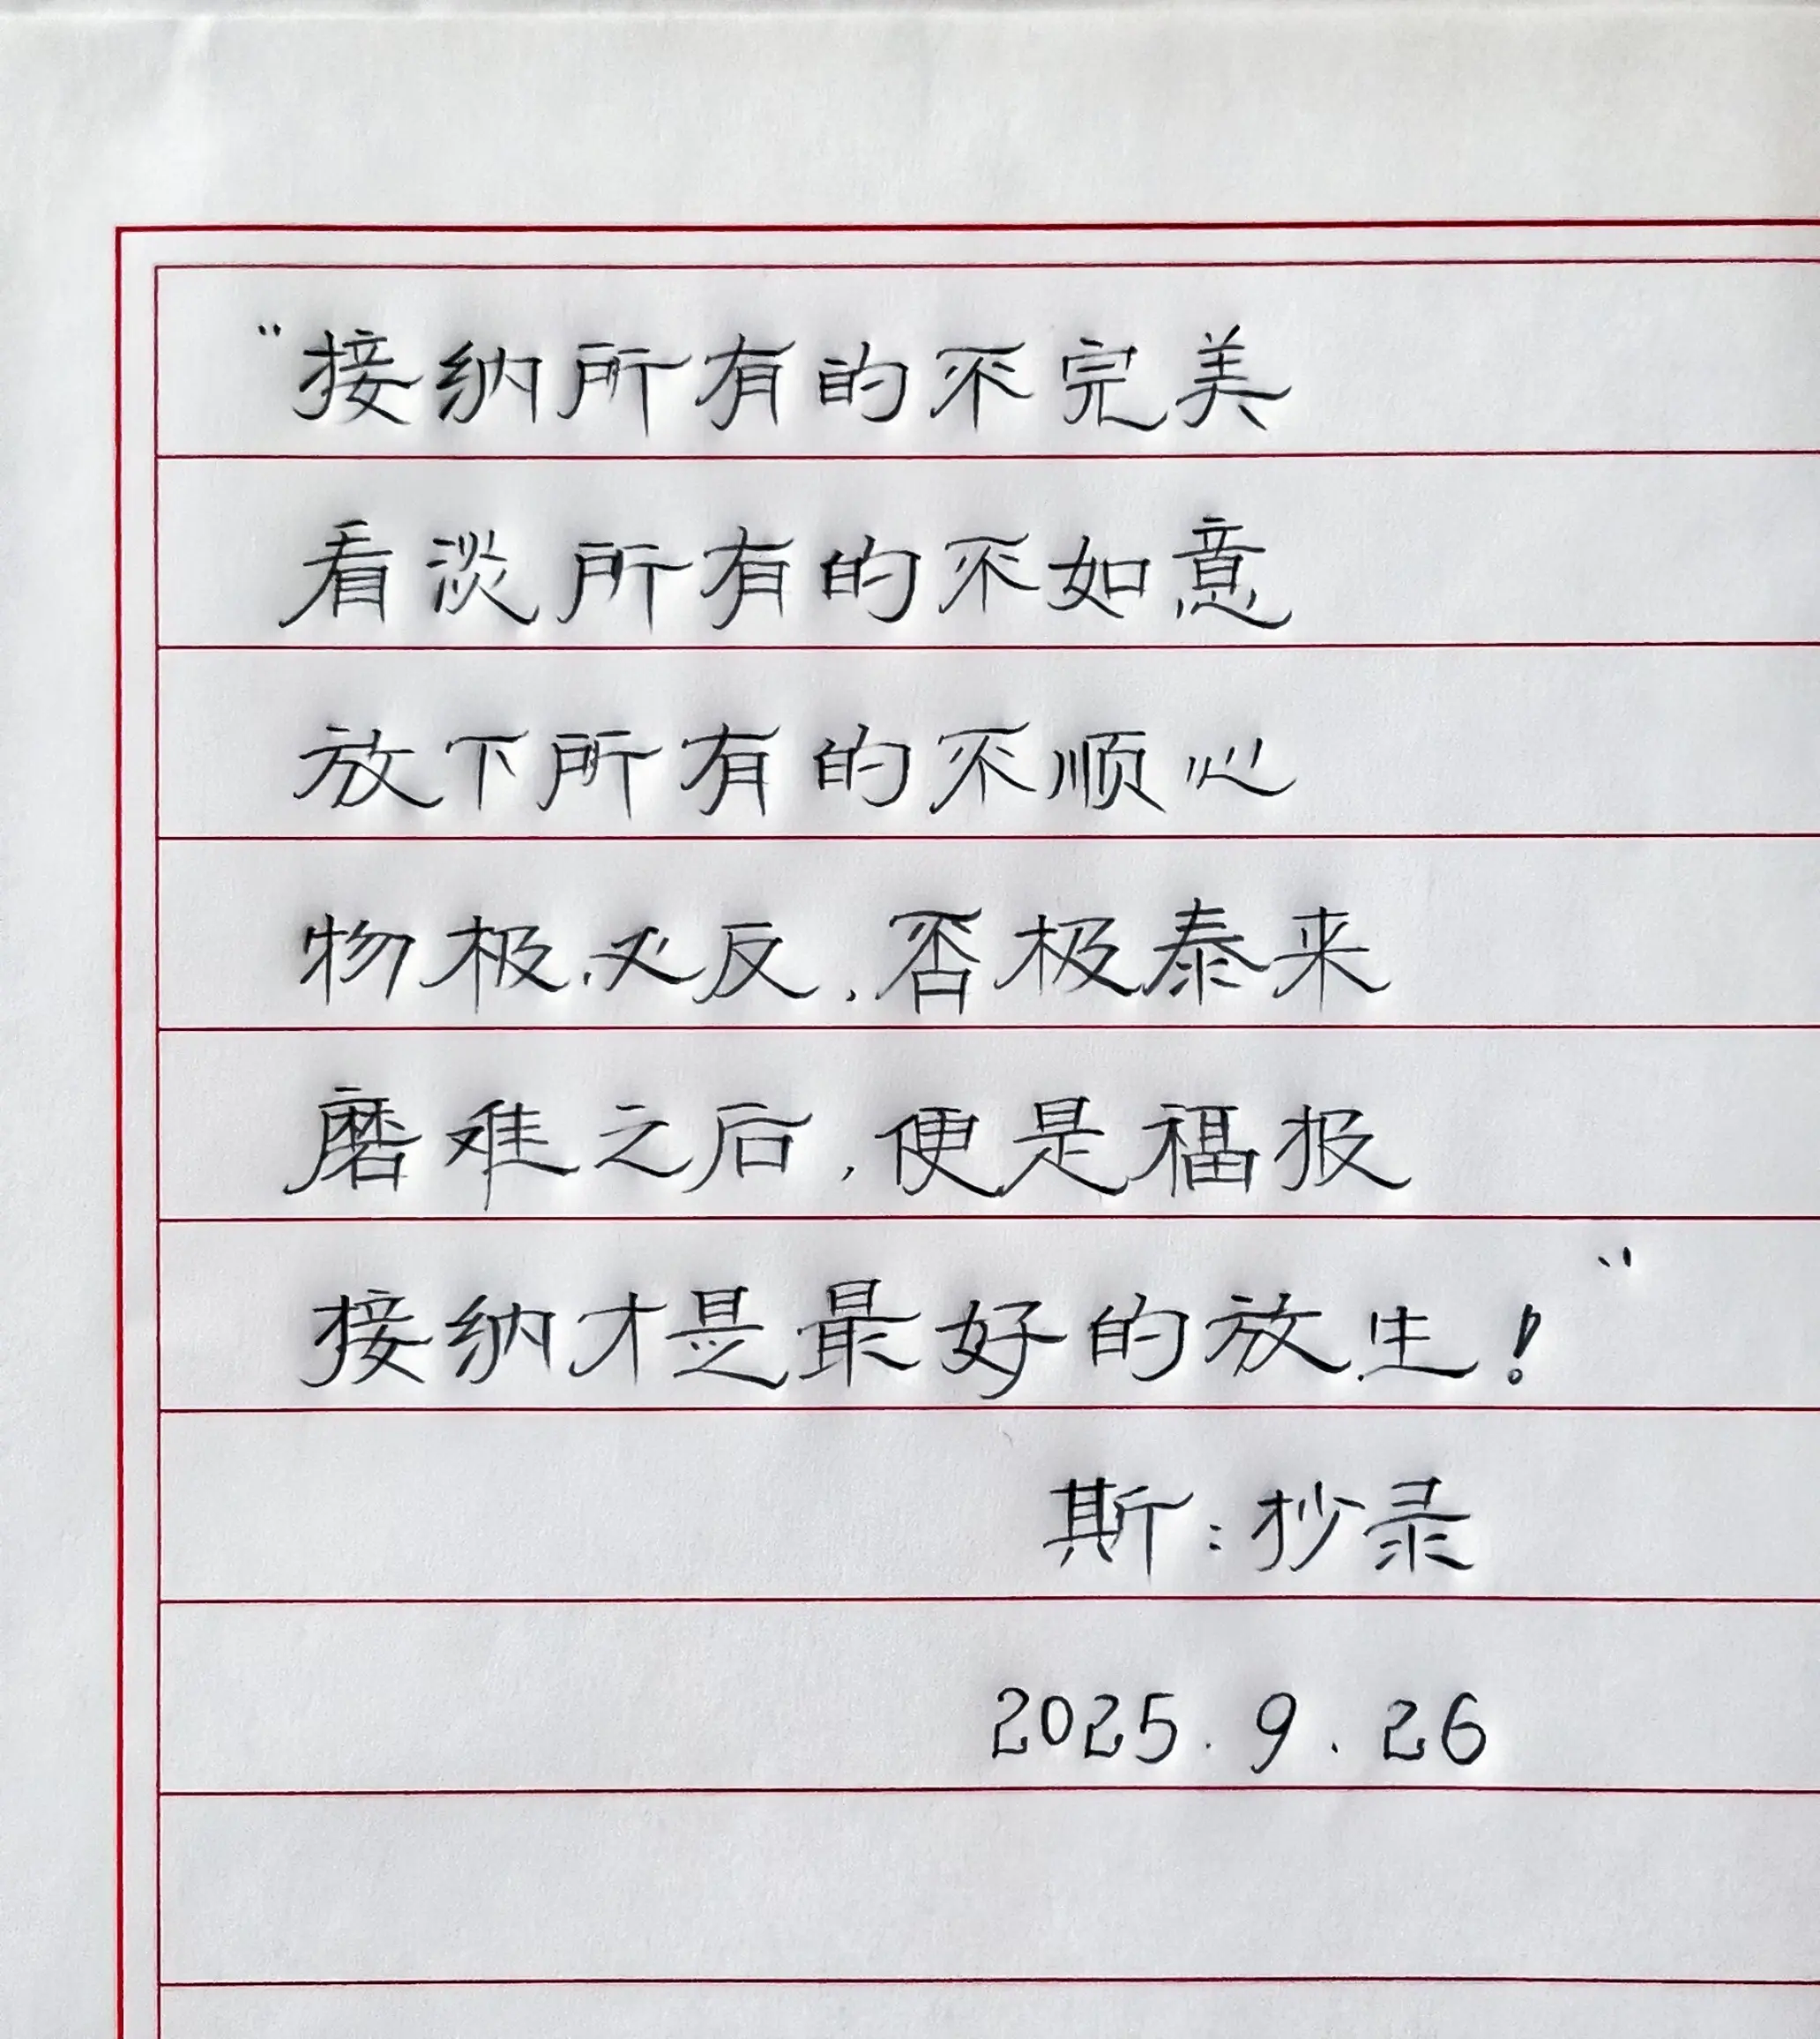 “接纳所有的不完美
看淡所有的不如意
放下所有的不顺心
物极必反，否极泰来
磨难之后，便是福报
接纳才是最好的放生！”
斯：抄录
2025.9.26